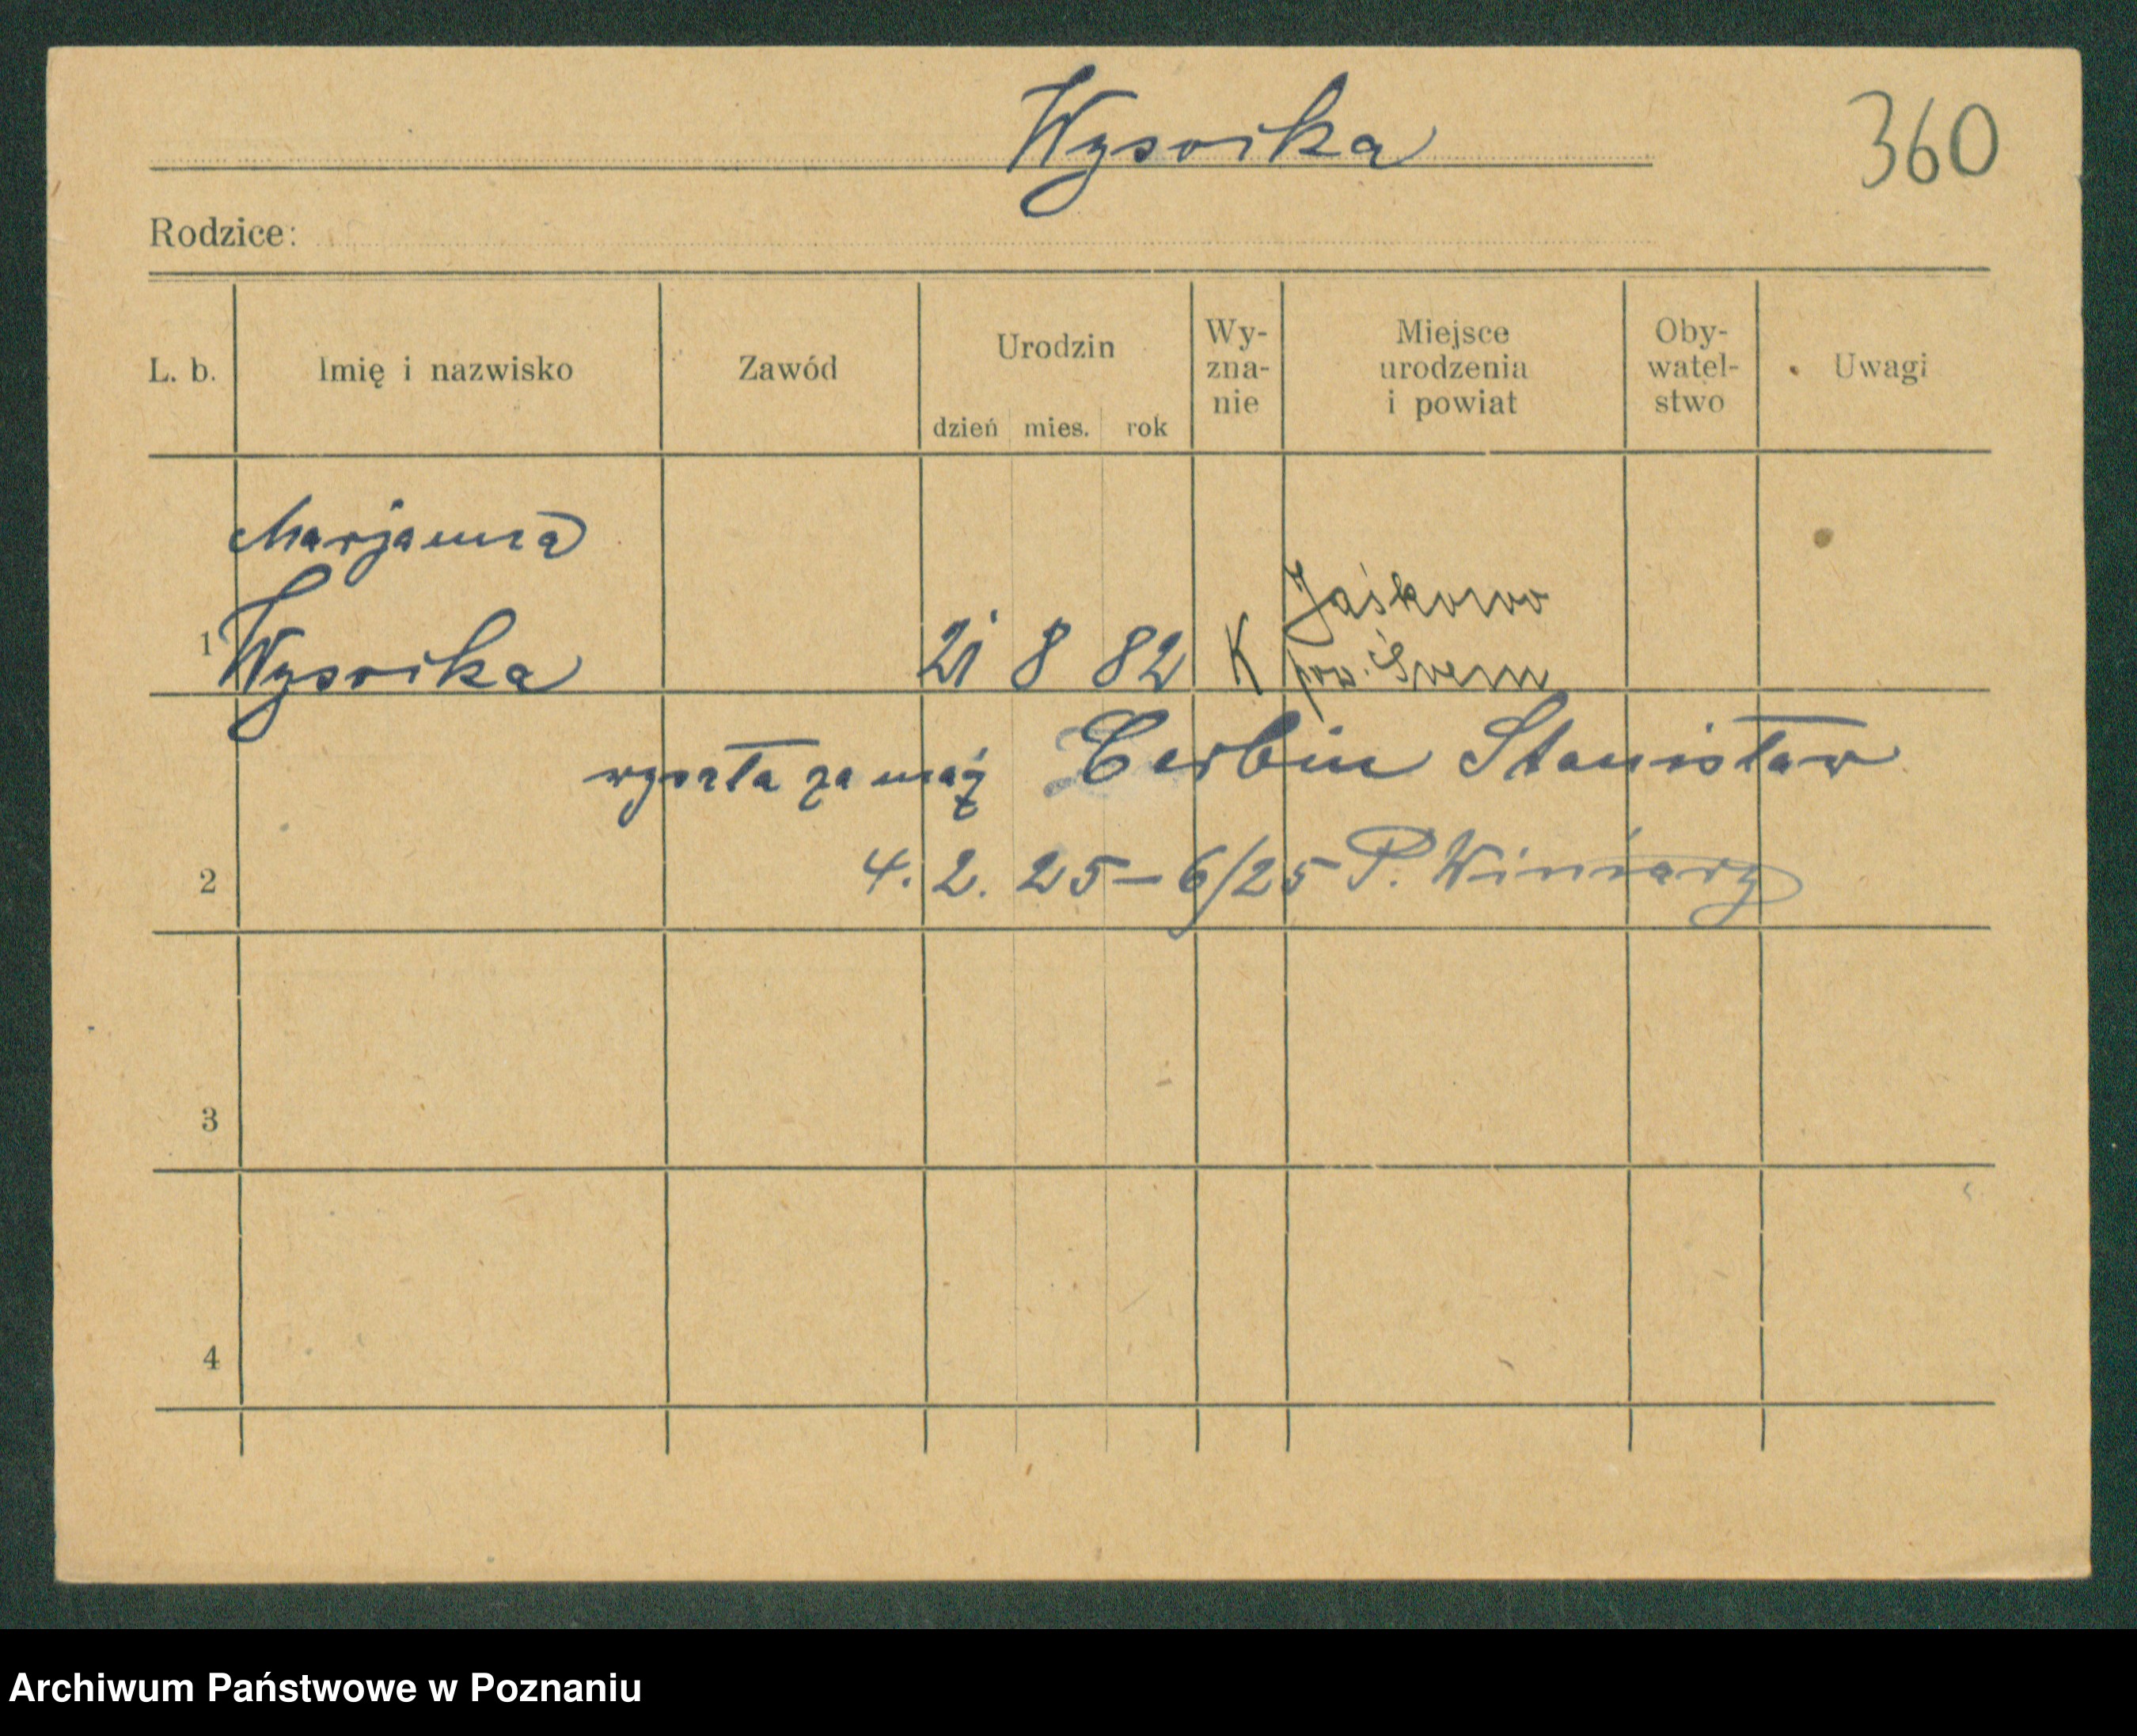 Wysocka
360
Rodzice:
L. b. Imię i nazwisko Zawód Urodzin Wy- Miejsce Oby- Uwagi
zna- urodzenia watel-
dzień mies. rok nie i powiat stwo
Marjanna
Jaśkowo
1 Wysocka 21 8 82 K pow. Śrem
wyszła za mąż Cerbin Stanisław
2 4. 2. 25 – 6/25 P. Winiary
3
4
Archiwum Państwowe w Poznaniu